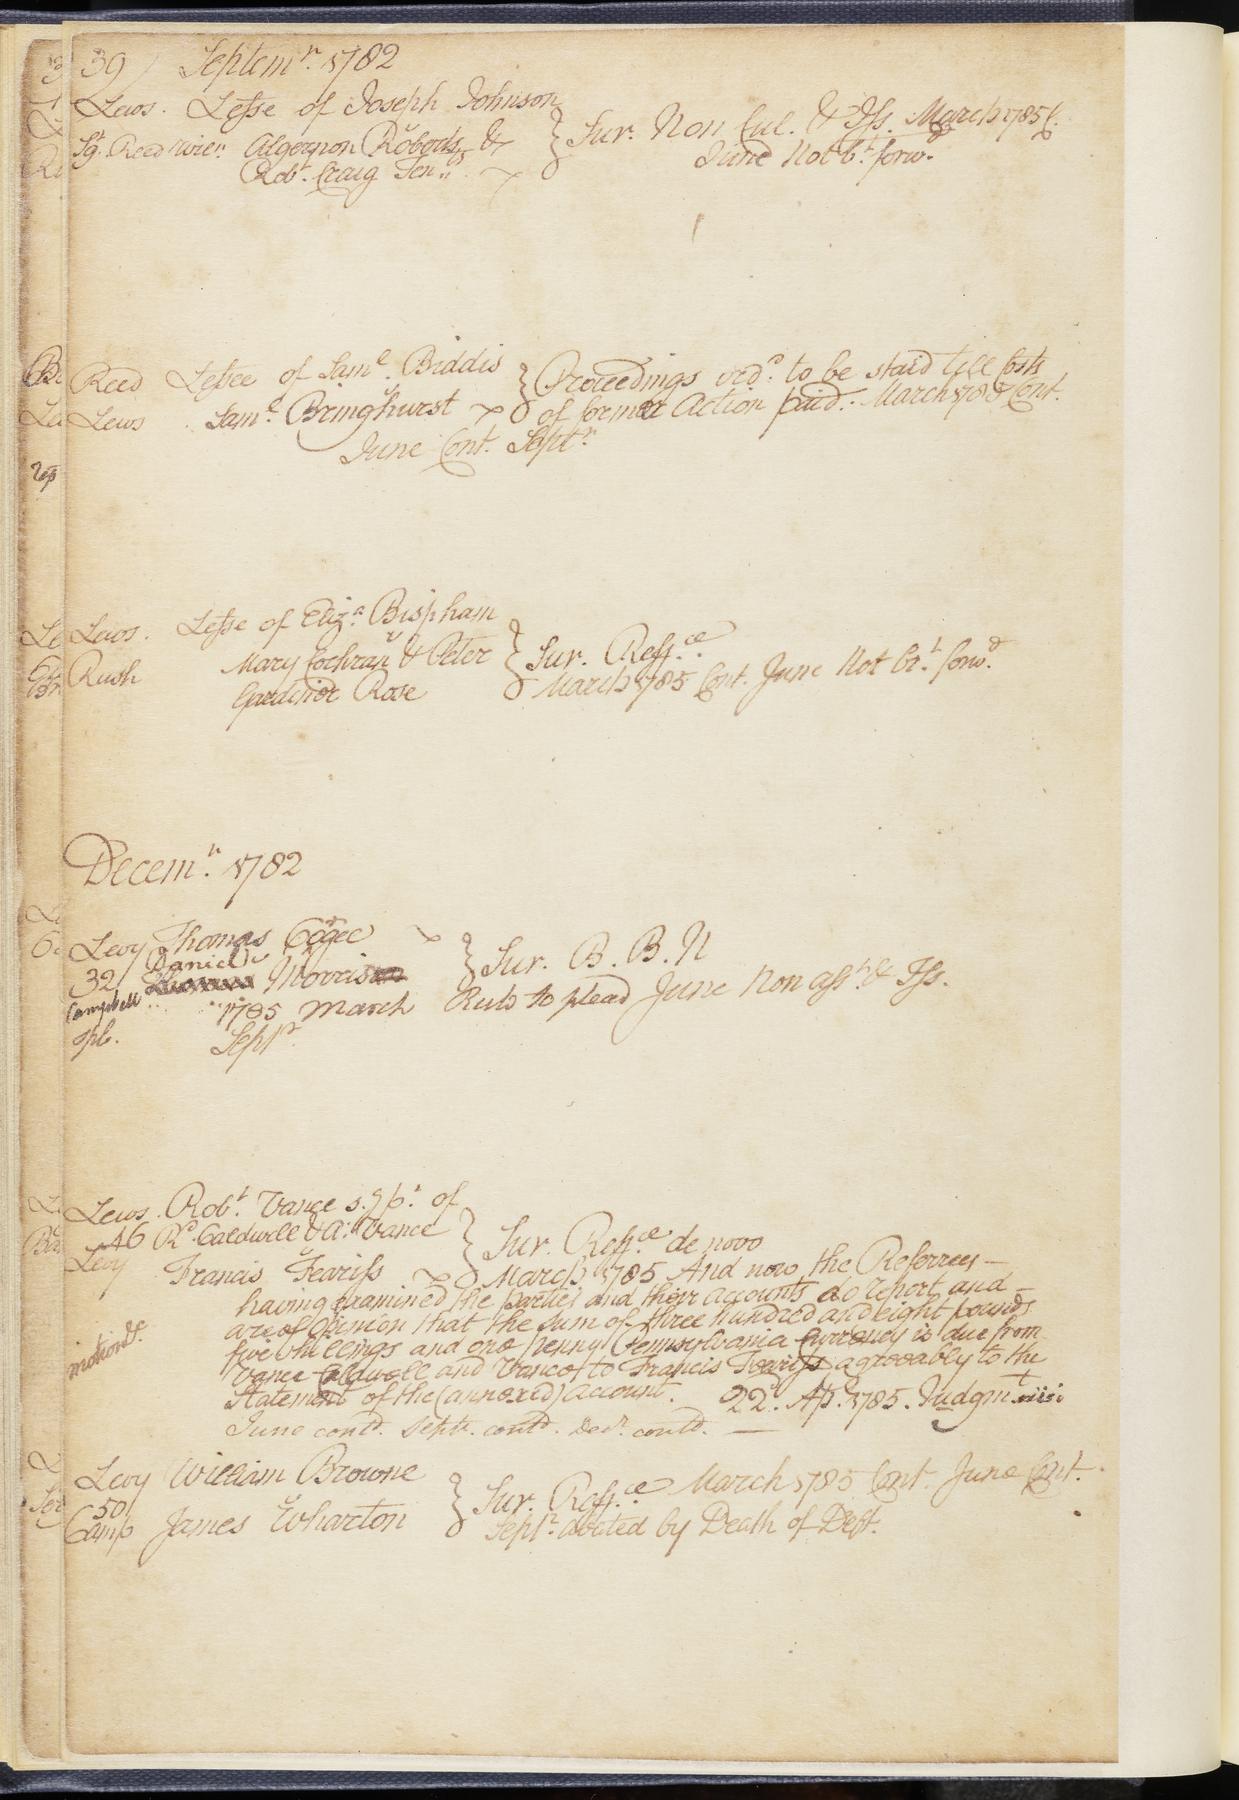 39) Septemr. 1782
Lews. Lesse of Joseph Johnson
v
Sg. Reed Wier. Algernon Roberts &
Robt. Craig Ten..ts
} Sur. Non Cul. & Iss. March 1785 C.
June Not bt. forw.
Reed Lesse of Saml. Biddis
v
Lews Saml. Bringhurst
} Proceedings ord. to be staid till Costs
of former Action paid. March 1785 Cont.
June Cont. Septr
Lews. Lesse of Eliza. Bispham
v
Rush Mary Cochran & Peter
Gardenor Rose
} Sur. Reffce.
March 1785 Cont. June Not Bt. forwd.
Decemr. 1782
Levy Thomas
v
32 Daniel Morris
Campbell
spl.
} Sur. B. B. N
1785 March Rule to plead June Non asst. & Iss.
Septr.
Lews. Robt. Vance s. pr. of
46 Rd. Caldwell & A: Vance
v
Levy Francis Feariss
} Sur. Reffce. de novo
March 1785 And now the Referrees
having examined the parties and their accounts do report and
are of Opinion that the sum of three hundred and eight pounds
five shillings and one penny Pennsylvania Currency is due from
Vance Caldwell and Vance to Francis Feariss agreeably to the
Statement of the (annexed) account. 22d. Ap. 1785. Judgmt. nisi.
motion
June contd. Septr. contd. Decr. contd.
Levy William Browne
50 v
Camp James Wharton
} Sur. Reffce. March 1785 Cont. June Cont.
Septr. abated by Death of Deft.